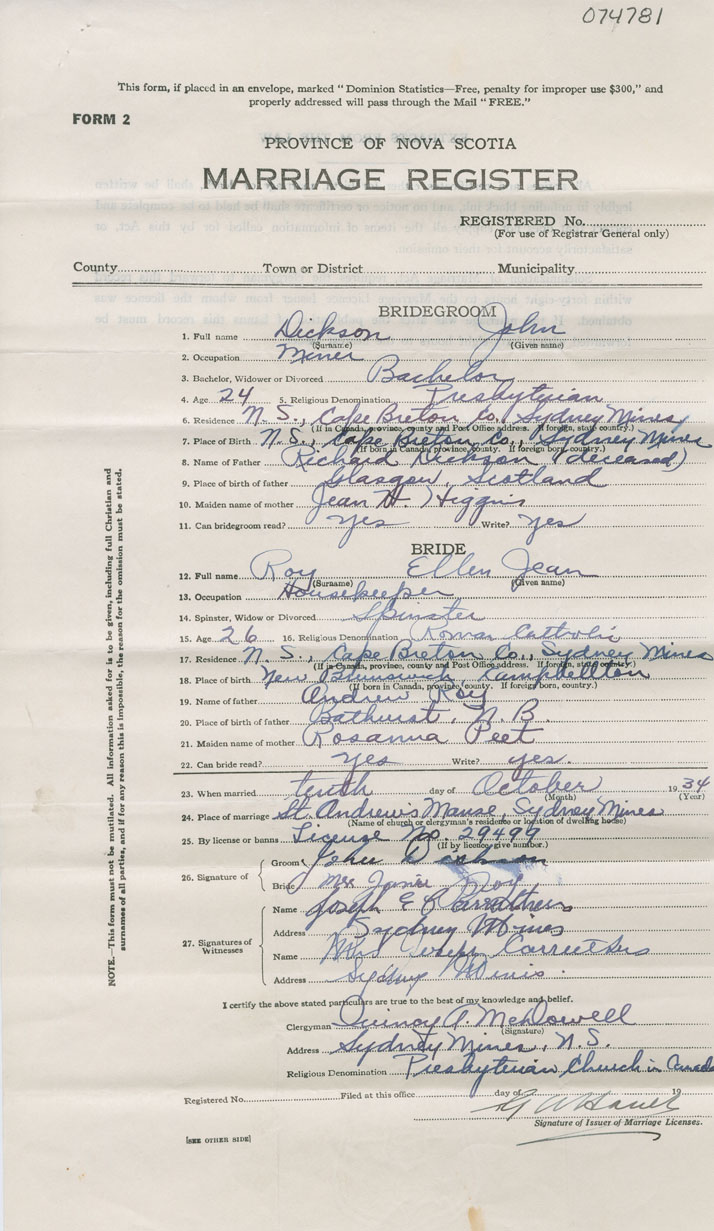 074781
This form, if placed in an envelope, marked "Dominion Statistics—Free, penalty for improper use $300," and
properly addressed will pass through the Mail "FREE."
FORM 2
PROVINCE OF NOVA SCOTIA
MARRIAGE REGISTER
REGISTERED No.
(For use of Registrar General only)
County Town or District Municipality
BRIDEGROOM
1. Full name Dickson John
(Surname) (Given name)
2. Occupation Miner
3. Bachelor, Widower or Divorced Bachelor
4. Age 24 5. Religious Denomination Presbyterian
6. Residence N. S., Cape Breton Co., Sydney Mines
(If in Canada, province, county and Post Office address. If foreign, state country.)
7. Place of Birth N. S., Cape Breton Co., Sydney Mines
(If born in Canada, province, county. If foreign born, country.)
8. Name of Father Richard Dickson (deceased)
9. Place of birth of father Glasgow, Scotland
10. Maiden name of mother Jean H. Higgins
11. Can bridegroom read? Yes Write? Yes
BRIDE
12. Full name Roy Ellen Jean
(Surname) (Given name)
13. Occupation Housekeeper
14. Spinster, Widow or Divorced Spinster
15. Age 26 16. Religious Denomination Roman Catholic
17. Residence N. S., Cape Breton Co., Sydney Mines
(If in Canada, province, county and Post Office address. If foreign, state country.)
18. Place of birth New Brunswick Campbellton
(If born in Canada, province, county. If foreign born, country.)
19. Name of father Andrew Roy
20. Place of birth of father Bathurst, N. B.
21. Maiden name of mother Rosanna Peet
22. Can bride read? Yes Write? yes.
23. When married tenth day of October 1934
(Month) (Year)
24. Place of marriage St. Andrew's Manse, Sydney Mines
(Name of church or clergyman's residence or location of dwelling house)
25. By license or banns License No. 29497
(If by licence, give number.)
26. Signature of Groom John Dickson
Bride Mrs Roy
27. Signatures of Witnesses
Name Joseph E Carruthers
Address Sydney Mines
Name Mrs Joseph Carruthers
Address Sydney Mines.
I certify the above stated particulars are true to the best of my knowledge and belief.
Clergyman Quincy A. McDowell
(Signature)
Address Sydney Mines, N.S.
Religious Denomination Presbyterian Church in Canada
Registered No. Filed at this office day of 19
Signature of Issuer of Marriage Licenses.
[SEE OTHER SIDE]
NOTE.—This form must not be mutilated. All information asked for is to be given, including full Christian and
surnames of all parties, and if for any reason this is impossible, the reason for the omission must be stated.